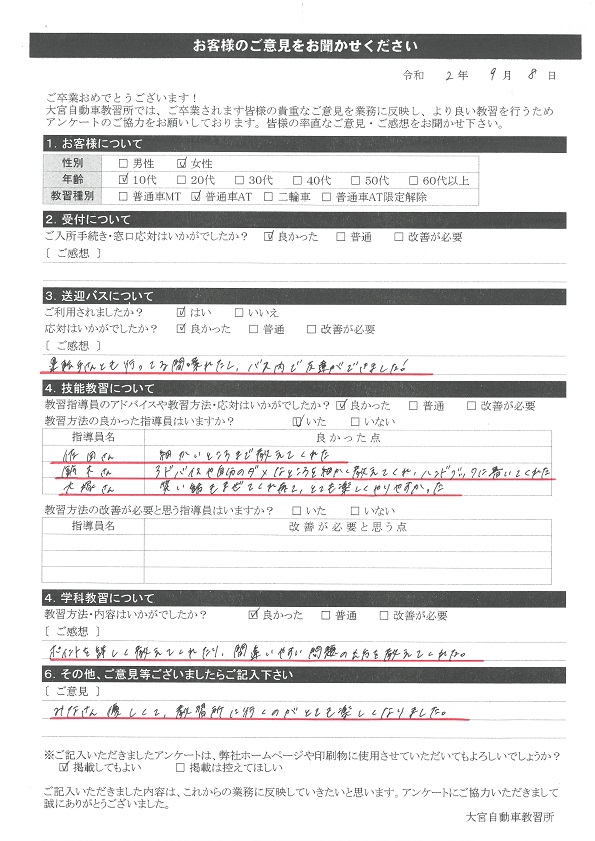 お客様のご意見をお聞かせください
令和 2 年 9 月 8 日
ご卒業おめでとうございます！
大宮自動車教習所では、ご卒業されます皆様の貴重なご意見を業務に反映し、より良い教習を行うため
アンケートのご協力をお願いしております。皆様の率直なご意見・ご感想をお聞かせ下さい。
1. お客様について
性別 □ 男性 ☑ 女性
年齢 ☑ 10代 □ 20代 □ 30代 □ 40代 □ 50代 □ 60代以上
教習種別 □ 普通車MT ☑ 普通車AT □ 二輪車 □ 普通車AT限定解除
2. 受付について
ご入所手続き・窓口応対はいかがでしたか？ ☑ 良かった □ 普通 □ 改善が必要
[ ご感想 ]
3. 送迎バスについて
ご利用されましたか？ ☑ はい □ いいえ
応対はいかがでしたか？ ☑ 良かった □ 普通 □ 改善が必要
[ ご感想 ]
運転手さんとも行ってる間喋れたし、バス内で友達ができました！
4. 技能教習について
教習指導員のアドバイスや教習方法・応対はいかがでしたか？ ☑ 良かった □ 普通 □ 改善が必要
教習方法の良かった指導員はいますか？ ☑ いた □ いない
指導員名 良かった点
さん 細かいところまで教えてくれた
さん アドバイスや自分のダメなところを細かく教えてくれ、ハンドブックに書いてくれた
大塚さん 笑い話もまぜてくれ とても楽しくやりやすかった
教習方法の改善が必要と思う指導員はいますか？ □ いた □ いない
指導員名 改善が必要と思う点
4. 学科教習について
教習方法・内容はいかがでしたか？ ☑ 良かった □ 普通 □ 改善が必要
[ ご感想 ]
ポイントを詳しく教えてくれたり、間違いやすい問題の を教えてくれた。
6. その他、ご意見等ございましたらご記入下さい
[ ご意見 ]
みなさん優しくて、教習所に行くのがとても楽しくなりました。
※ご記入いただきましたアンケートは、弊社ホームページや印刷物に使用させていただいてもよろしいでしょうか？
☑ 掲載してもよい □ 掲載は控えてほしい
ご記入いただきました内容は、これからの業務に反映していきたいと思います。アンケートにご協力いただきまして
誠にありがとうございました。
大宮自動車教習所